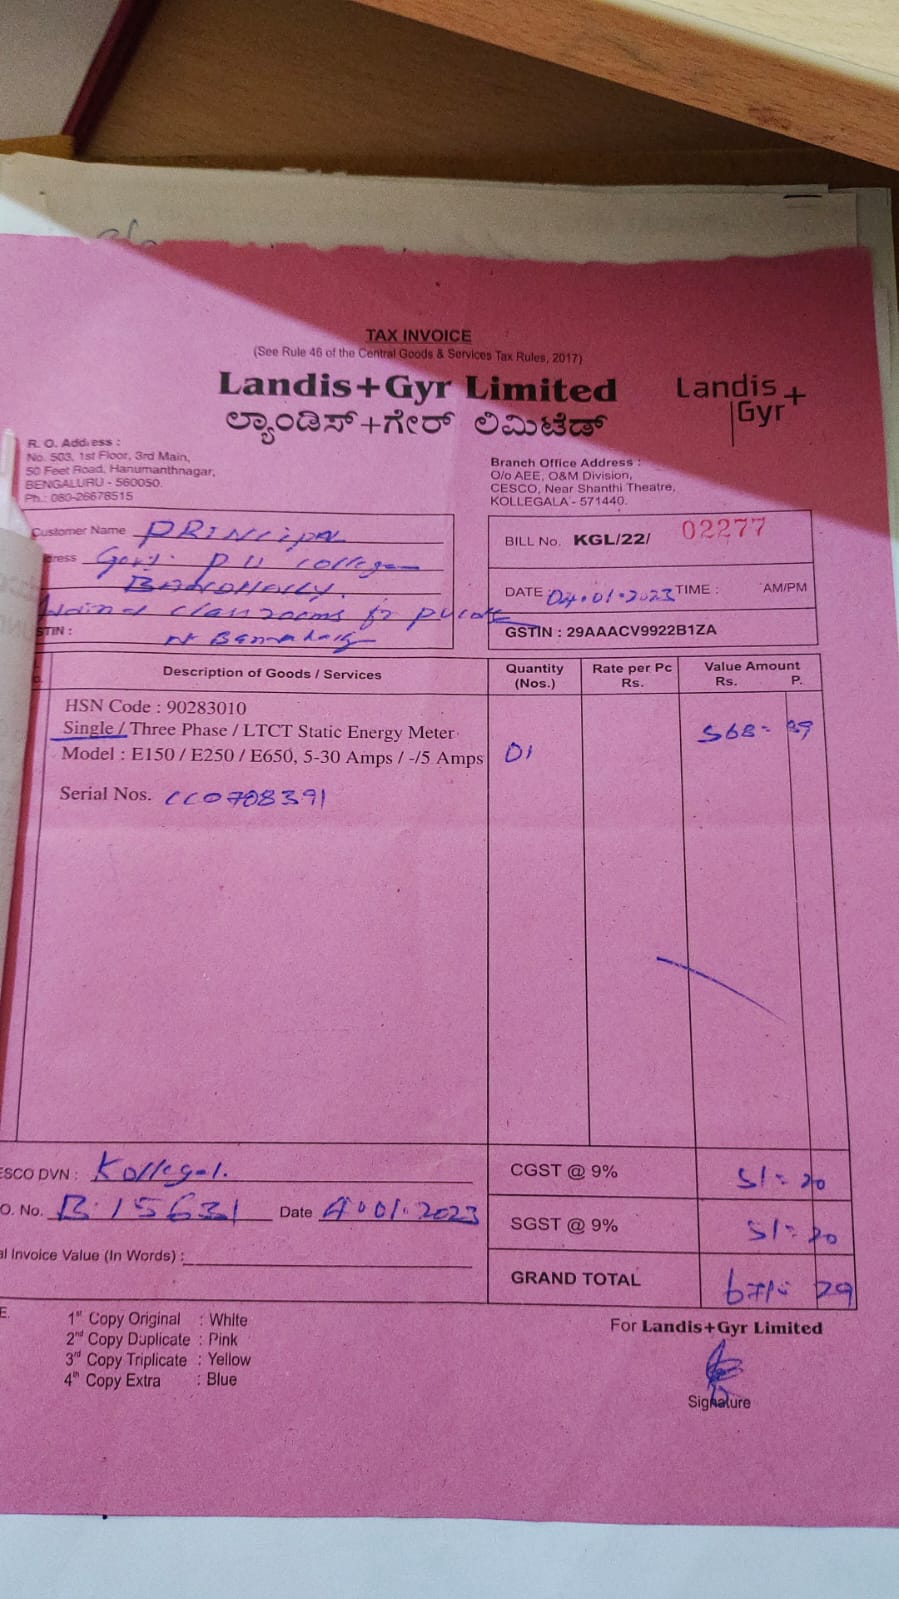 TAX INVOICE
(See Rule 46 of the Central Goods & Services Tax Rules, 2017)
Landis+Gyr Limited
Landis+
Gyr
ಲ್ಯಾಂಡಿಸ್+ಗೇರ್ ಲಿಮಿಟೆಡ್
R. O. Address :
No. 503, 1st Floor, 3rd Main,
50 Feet Road, Hanumanthnagar,
BENGALURU - 560050.
Ph.: 080-26678515
Branch Office Address :
O/o AEE, O&M Division,
CESCO, Near Shanthi Theatre,
KOLLEGALA - 571440.
Customer Name PRINCIPAL
ress Govt. P U College
class rooms for
STIN :
BILL No. KGL/22/ 02277
DATE 04.01.2023 TIME : AM/PM
GSTIN : 29AAACV9922B1ZA
Description of Goods / Services Quantity (Nos.) Rate per Pc Rs. Value Amount Rs. P.
HSN Code : 90283010
Single / Three Phase / LTCT Static Energy Meter
Model : E150 / E250 / E650, 5-30 Amps / -/5 Amps 01 568=89
Serial Nos. CC0708391
ESCO DVN : Kollegal.
CGST @ 9% 51=20
O. No. B.15631 Date 4.01.2023
SGST @ 9% 51=20
al Invoice Value (In Words) :
GRAND TOTAL 671=29
E.
1st Copy Original : White
2nd Copy Duplicate : Pink
3rd Copy Triplicate : Yellow
4th Copy Extra : Blue
For Landis+Gyr Limited
Signature